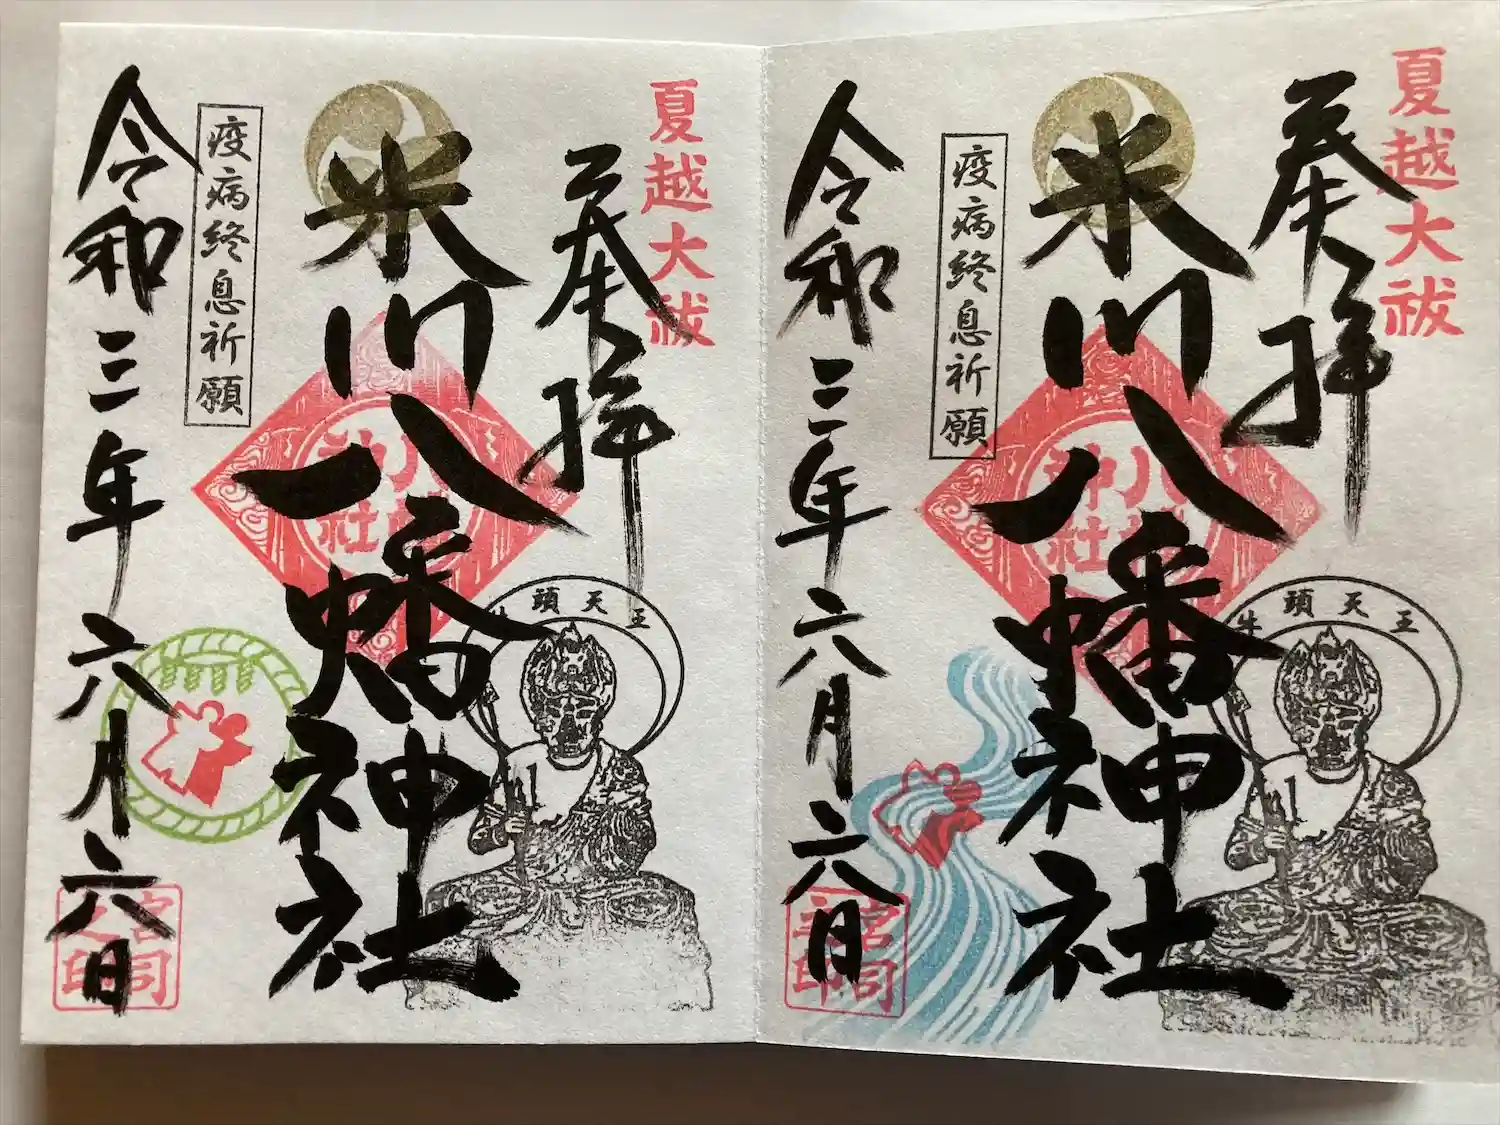 夏越大祓
奉拝
米川八幡神社
八幡
神社
疫病終息祈願
令和三年六月六日
牛頭天王
宮司
之印
夏越大祓
奉拝
米川八幡神社
八幡
神社
疫病終息祈願
令和三年六月六日
牛頭天王
宮司
之印